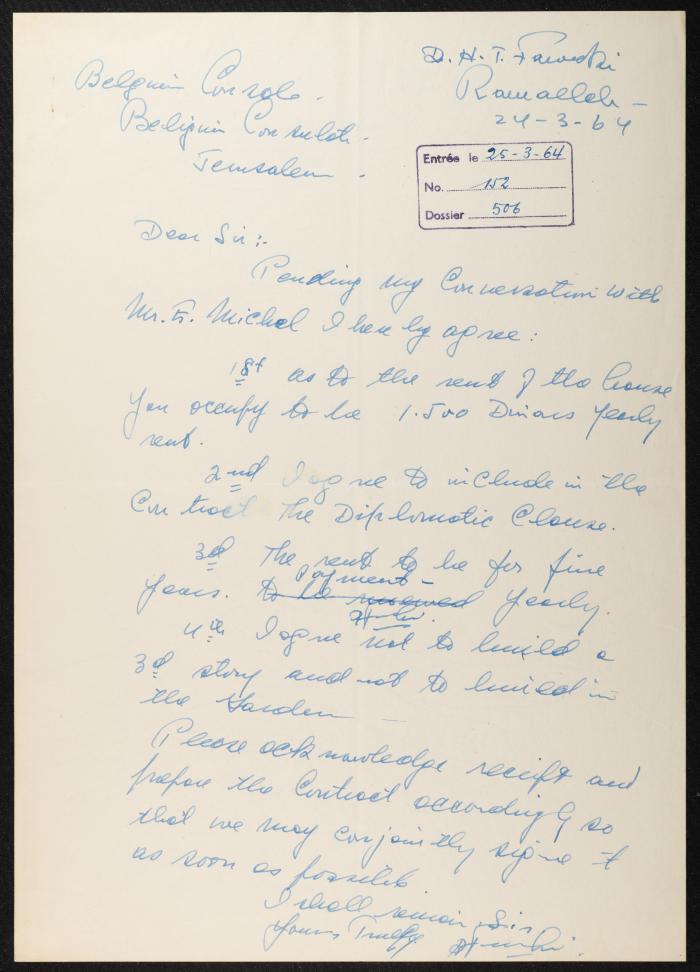 D. H. T.
Ramallah —
24-3-64
Belgium Console -
Belgium Consulate -
Jerusalem -
Entrée le 25-3-64
No. 152
Dossier 506
Dear Sir:-
Pending my Conversation with
Mr. F. Michel I here by agree:
1st as to the rent of the house
you occupy to be 1.500 Dinars yearly
rent.
2nd I agree to include in the
Contract the Diplomatic Clause.
3d The rent to be for five
payment -
years. to be renewed yearly.
4th I agree not to build a
3d story and not to build in
the Garden —
Please acknowledge receipt and
prepare the Contract accordingly so
that we may conjointly signe it
as soon as possible
I shall remain, Sir,
Yours Truly